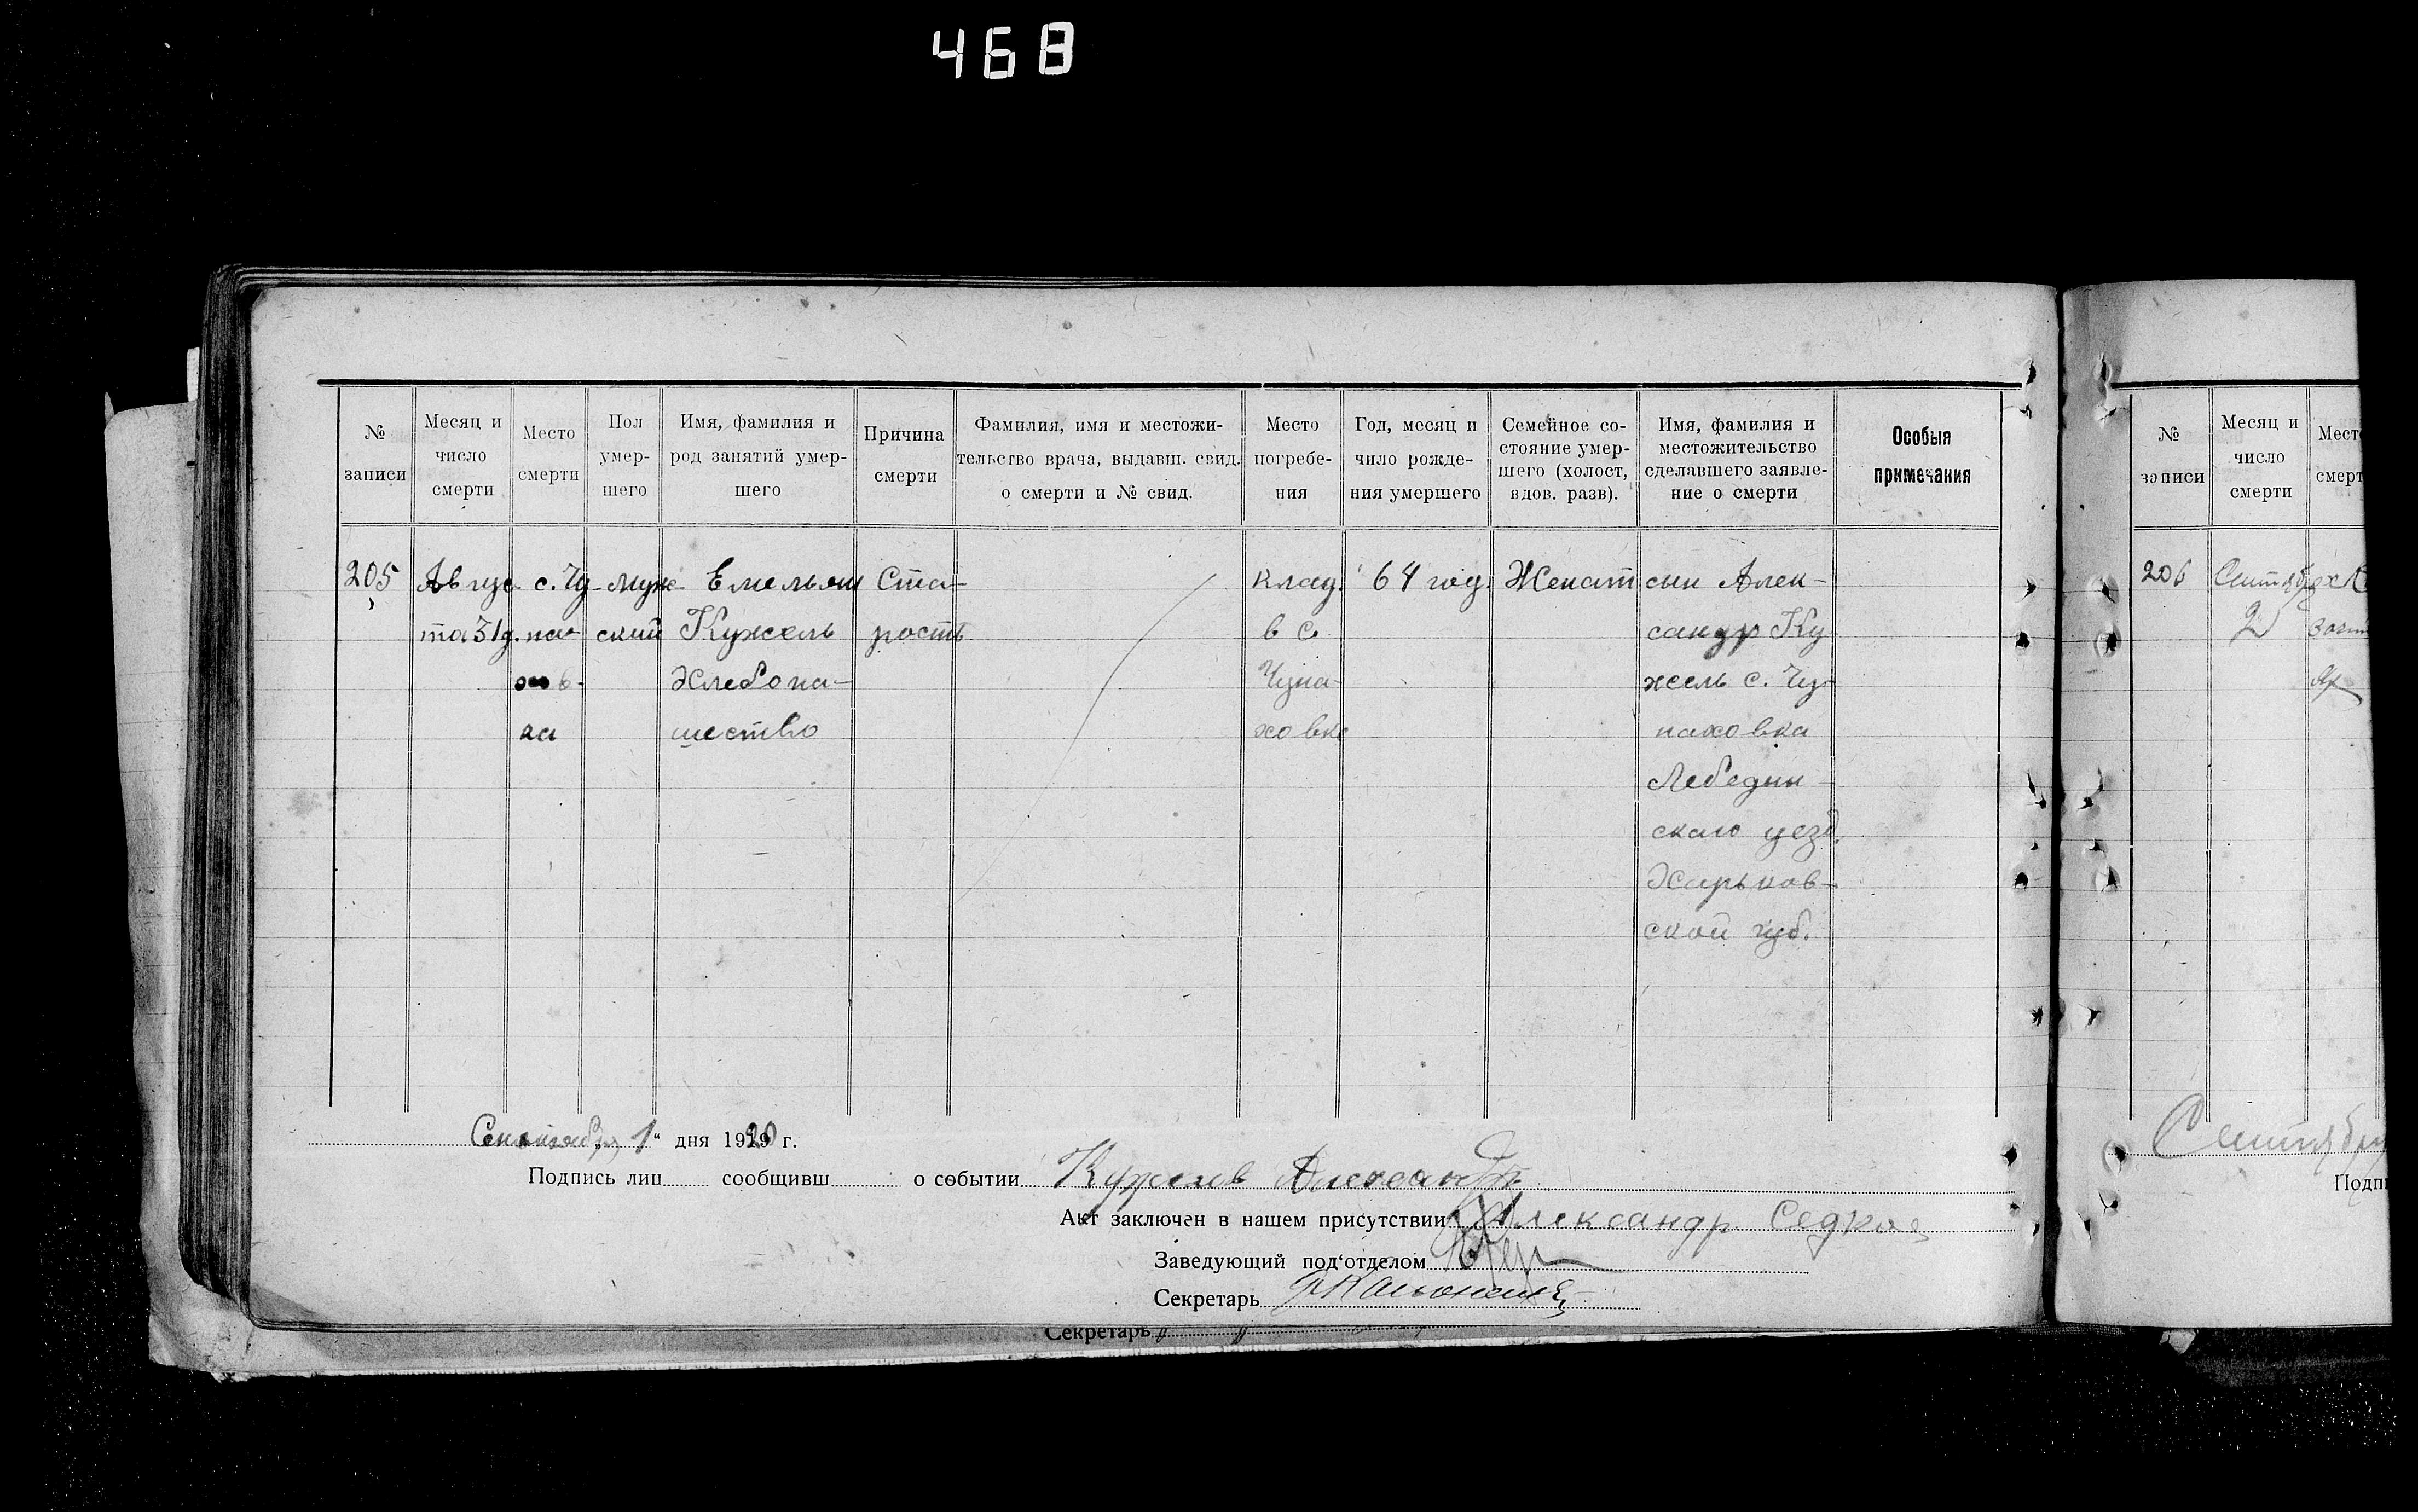 468
№ записи
Месяц и число смерти
Место смерти
Пол умер-
шего
Имя, фамилия и
род занятий умер-
шего
Причина
смерти
Фамилия, имя и местожи-
тельство врача, выдавш. свид.
о смерти и № свид.
Место
погребе-
ния
Год, месяц и
чило рожде-
ния умершего
Семейное со-
стояние умер-
шего (холост,
вдов. разв).
Имя, фамилия и
местожительство
сделавшего заявле-
ние о смерти
Особыя
примечания
205
Авгус-
та 31 д.
с. Чу-
па-
ов-
ка
муж-
ский
Емельян
Кужель
Хлебопа-
шество
Ста-
рость
клад.
в с.
Чупа-
ховке
64 год.
Женат
сын Алек-
сандр Ку
жель с. Чу-
паховка
Лебедин-
скаго уезд.
Харьков-
ской губ.
Сентября „1“ дня 1920 г.
Подпись лиц сообщивш о событии Александр
Акт заключен в нашем присутствии Александр
Заведующий под‘отделом
Секретарь
Секретарь
№
записи
Месяц и
число
смерти
Мест
смерт
206
Сентября
2
Сентябр
Подп